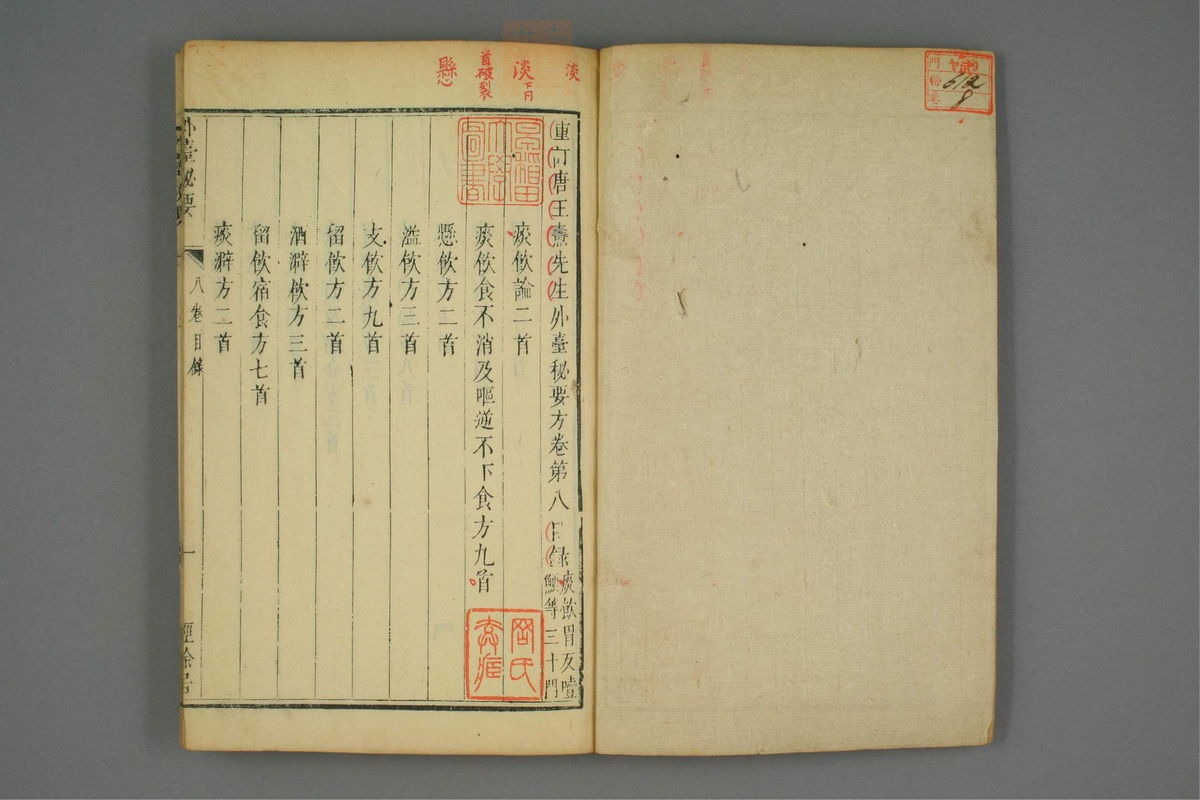 重訂唐王燾先生外臺秘要方卷第八目録
痰飲胃反噎
鯁等三十門
痰飲論二首
痰飲食不消及嘔逆不下食方九首
懸飲方二首
溢飲方三首
支飲方九首
留飲方二首
酒澼飲方三首
留飲宿食方七首
痰澼方二首
外臺秘要
八卷目錄
一
經餘居
淡
淡
下同
首破裂
懸
早稲田大學圖書
612
8